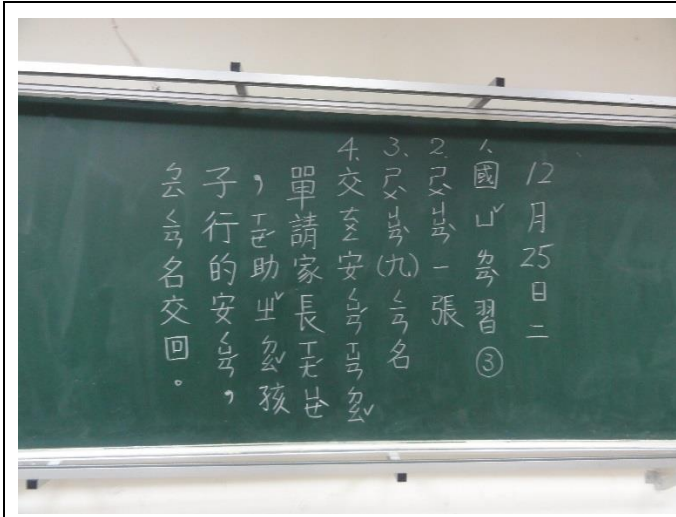 12月25日二
1.國ㄩˇㄌㄧㄢˋ習③
2.ㄕㄨˋㄐㄩㄢˋ一張
3.ㄕㄨˋㄐㄩㄢˋ(九)ㄑㄧㄢ名
4.交ㄊㄨㄥ安ㄑㄩㄢˊㄒㄩㄢㄉㄠˇ
單請家長ㄒㄧㄤˊㄩㄝˋ
，ㄒㄧㄝˊ助ㄓˇㄉㄠˇ孩
子行的安ㄑㄩㄢˊ，
ㄑㄧㄢ名交回。